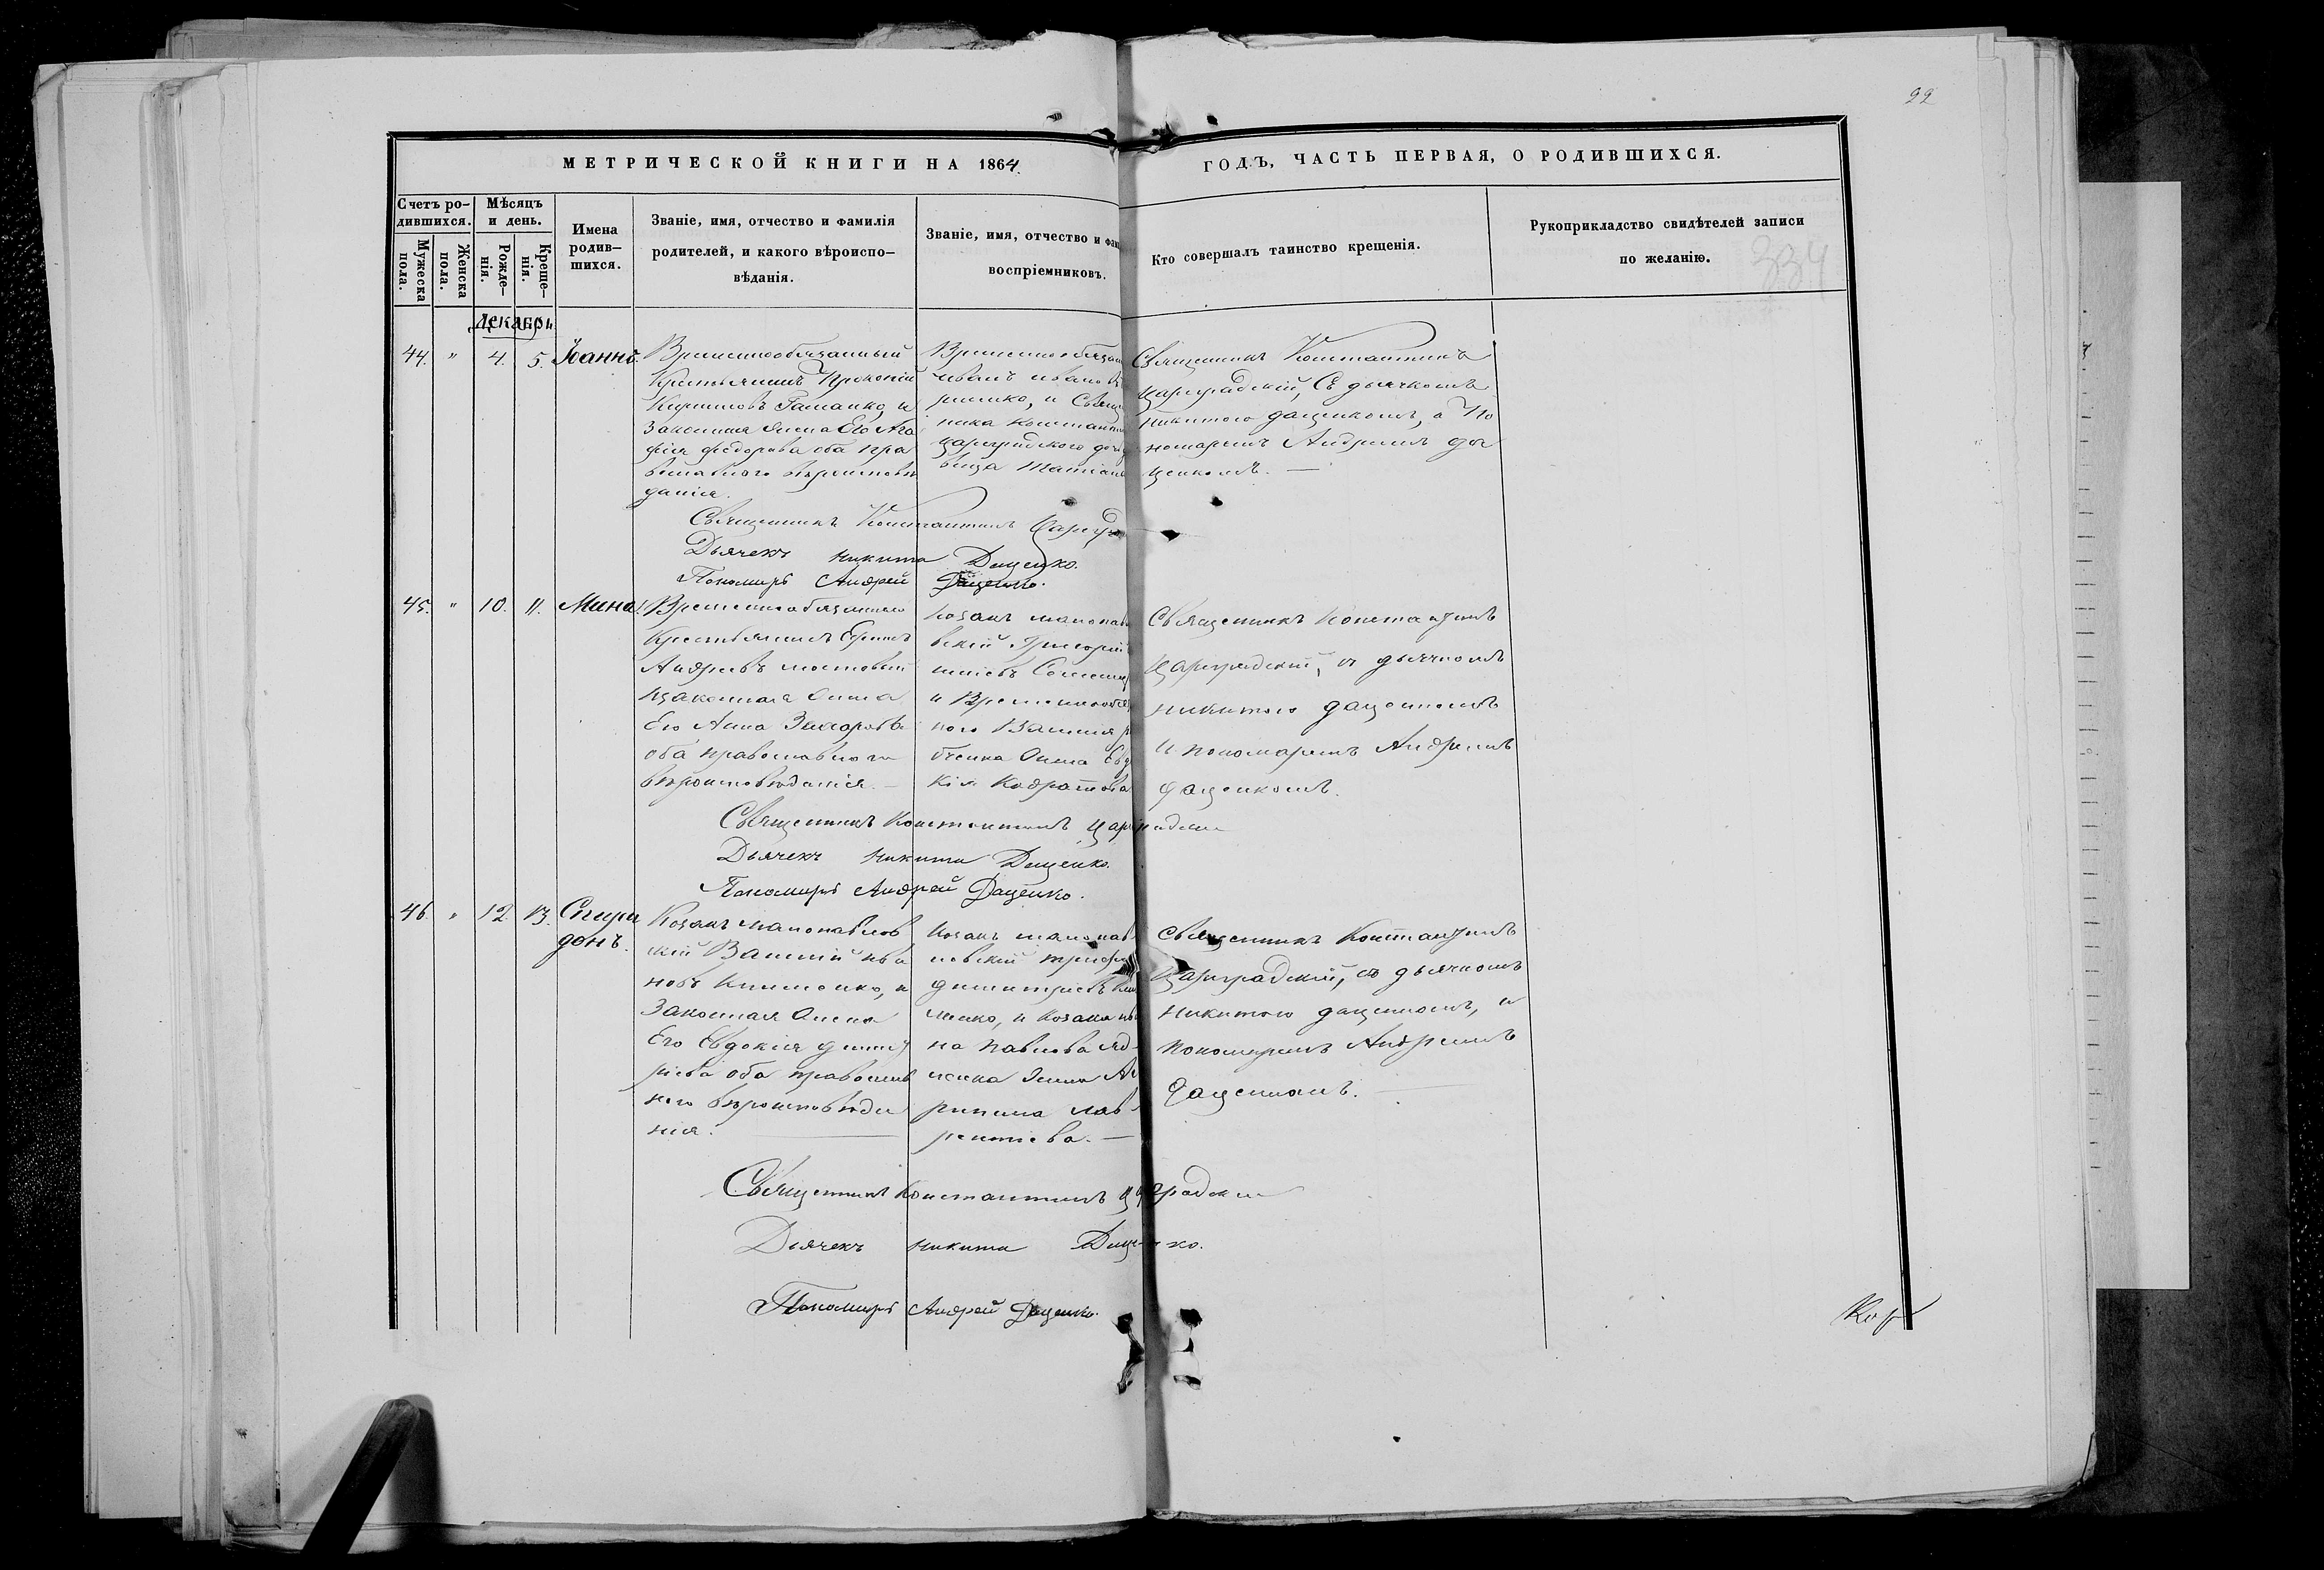 22
МЕТРИЧЕСКОЙ КНИГИ НА 1864.
ГОДЪ, ЧАСТЬ ПЕРВАЯ, О РОДИВШИХСЯ.
Счетъ ро-
дившихся.
Мужеска
пола.
Женска
пола.
Мѣсяцъ
и день.
Рожде-
нія.
Креще-
нія.
Имена
родив-
шихся.
Званіе, имя, отчество и фамилія
родителей, и какого вѣроиспо-
вѣданія.
Званіе, имя, отчество и фам
воспріемниковъ.
Кто совершалъ таинство крещенія.
Рукоприкладство свидѣтелей записи
по желанію.
334
Декабрь
44. " 4. 5. Іоаннъ.
Временнообязанный
Крестьянинъ Прокопій
Кириловъ, и
Законная Жена Его Ага
фія Федорова оба пра
вославного вѣроисповѣ
данія.
Временнообязан
Иванъ Иванов
ренко, и Свящ
ника Константи
Цареградского
вица
Священникъ Константинъ
Цареградскій, Съ дьячкомъ
Никитою Даценкомъ, и По
номаремъ Андреемъ Да
ценкомъ. —
Священникъ Константинъ Царегра
Дьячекъ Никита Даценко.
Пономарь Андрей Даценко.
45. " 10. 11. Мина.
Временнообязанный
Крестьянинъ
Андреевъ
Изаконная Жена
Его Анна Захарова
оба православного
вѣроисповѣданія. —
Козакъ малопав
вскій Григорій
и Временнообяз
ного Василія
бченка Жена Евд
кія Кодратова
Священникъ Константинъ
Цареградскій, съ дьячкомъ
Никитою Даценкомъ
и пономаремъ Андреемъ
Даценкомъ.
Священникъ Константинъ Цареградскій
Дьячекъ Никита Даценко.
Пономарь Андрей Даценко.
46. " 12. 13. Спири
донъ.
Козакъ малопавлов
скій Василій Ива
новъ Клименко, и
Законная Жена
Его Евдокія Димит
ріева оба православ
ного вѣроисповѣда
нія. —
Козакъ малопав
ловскій
Димитріевъ Кли
менко, и Козака
на Павлова
ленка Жена Аг
рипина Лав
рентіева. —
Священникъ Константинъ
Цареградскій, съ дьячкомъ
Никитою Даценкомъ, и
пономаремъ Андреемъ
Даценкомъ. —
Священникъ Константинъ Цареградскій
Дьячекъ Никита Даценко.
Пономарь Андрей Даценко.